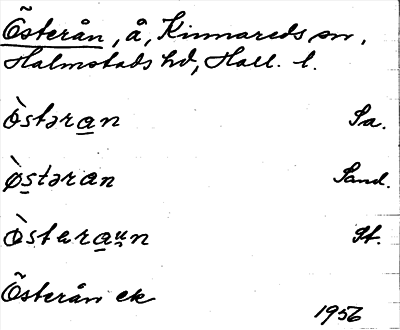 Österån, å, Kinnareds sn,
Halmstads hd, Hall. l.
ø̀stəran Sa.
ø̀stəran Sand.
ø̀stəraun St.
Österån ek
1956